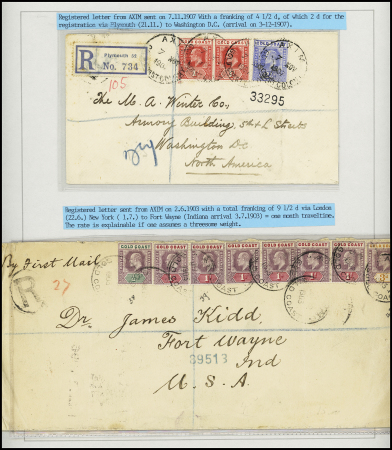 Registered letter from AXIM sent on 7.11.1907 With a franking of 4 1/2 d, of which 2 d for the
registration via Plymouth (21.11.) to Washington D.C. (arrival on 3-12-1907).
R
Plymouth
No. 734
105
GOLD COAST
GOLD COAST
GOLD COAST
33295
The M. A. Winter Co,
Armory Building,
Washington DC
North America
Registered letter sent from AXIM on 2.6.1903 with a total franking of 9 1/2 d via London
(22.6.) New York ( 1.7.) to Fort Wayne (Indiana arrival 3.7.1903) = one month traveltime.
The rate is explainable if one assumes a threesome weight.
GOLD COAST
GOLD COAST
GOLD COAST
GOLD COAST
GOLD COAST
GOLD COAST
GOLD COAST
GOLD COAST
By First Mail
R
27
Dr. James Kidd
Fort Wayne
09513
Ind
U.S.A.